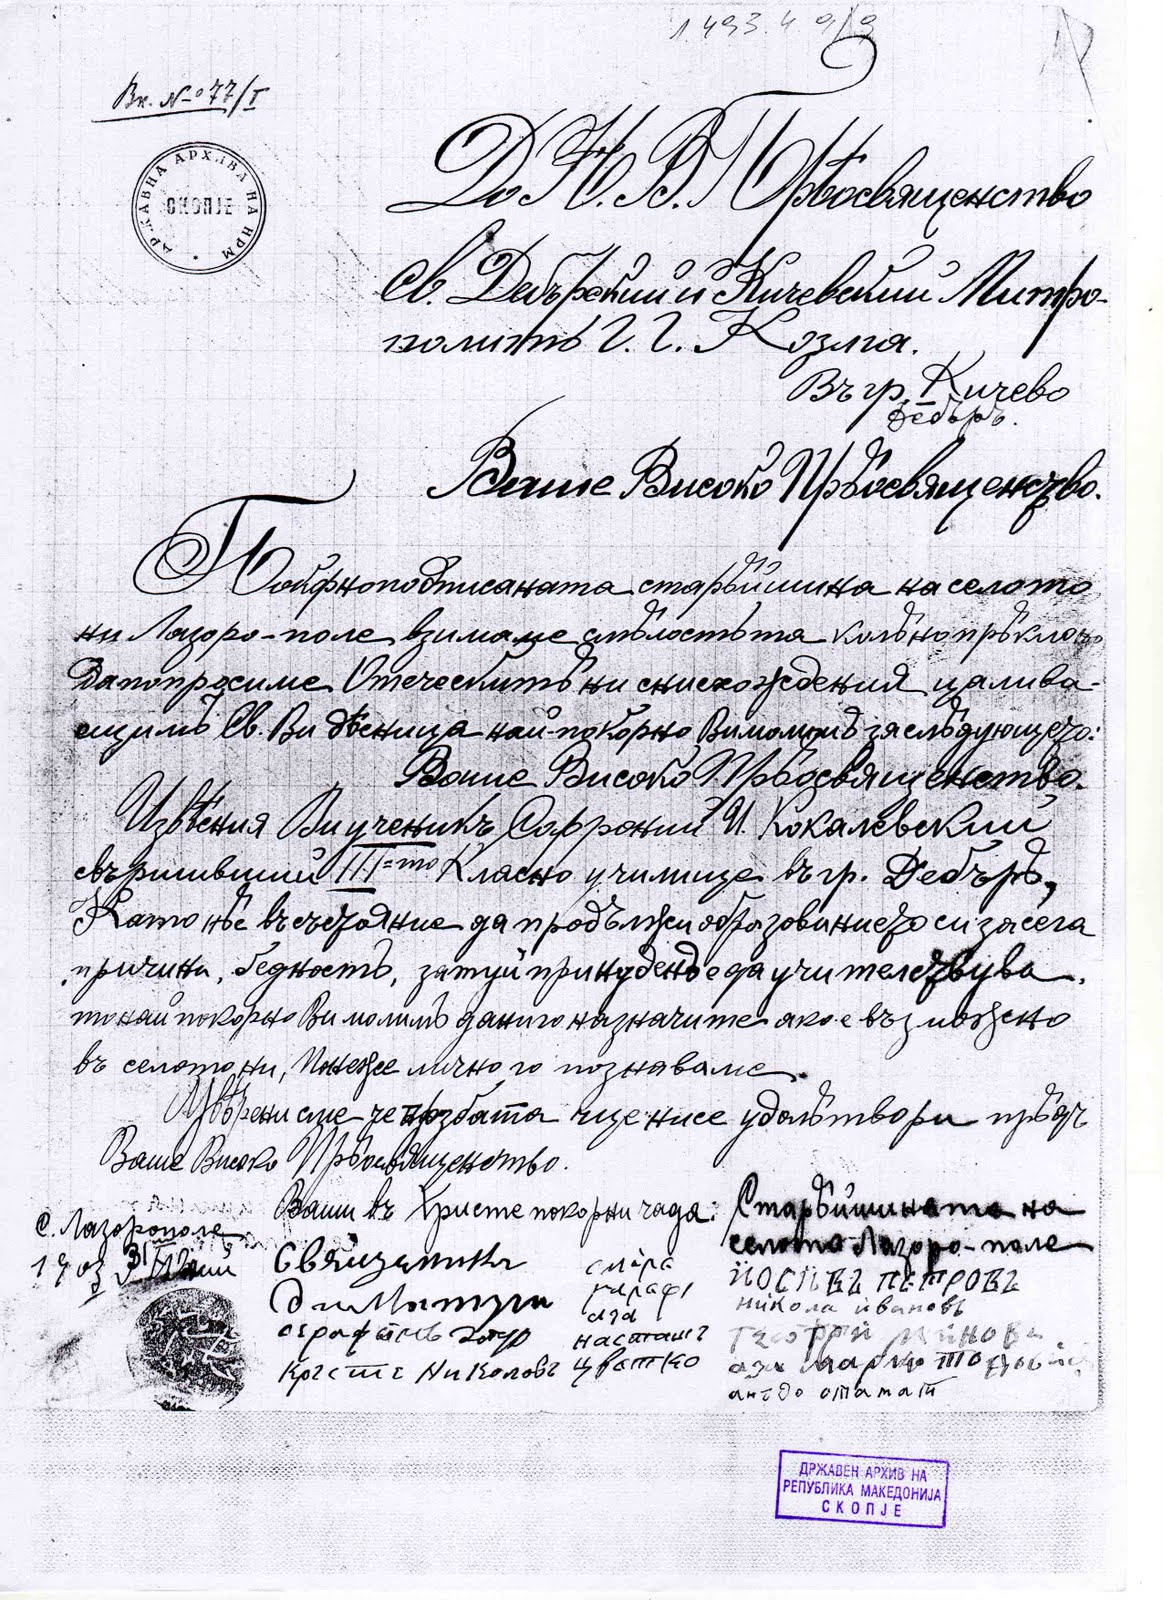 1.493.4.9/9
Вк. №77/I
ДРЖАВНА АРХИВА НА НРМ
СКОПЈЕ
До Н. В. Прѣосвященство
Св. Дебърский и Кичевский Митро-
политъ Г. Г. Козма.
Въ гр. Кичево
Дебъръ.
Ваше Високо Прѣосвященство.
Долуподписаната старѣйшина на селото
ни Лазоро-поле взимаме смѣлостьта колѣнопрѣклоно
да попросиме Отеческитѣ ни снисхождения цалива-
ещимъ Св. Ви дѣсница най-покорно Ви молимъ за слѣдующето:
Ваше Високо Прѣосвященство.
Извѣстния Ви ученикъ Софроний И. Кокалевский
свършивший III=то Класно училище въ гр. Дебъръ,
Като не е въ състояние да продължи образованието си за сега
причина, бедность, затуй принуденъ е да учителствува,
то най покорно Ви молимъ да ни го назначите ако е възможно
въ селото ни, понеже лично го познаваме.
Увѣрени сме че прозбата ни ще ни се удолѣтвори прѣдъ
Ваше Високо Прѣосвященство.
с. Лазорополе
1903 31 Май
Ваши въ Христе покорни чада:
Старѣйшината на
селото Лазоро-поле
Свѣщеникъ
Крсте Николовъ
Цветко
ЙОСИВЪ ПЕТРОВЪ
никола ивановъ
ДРЖАВЕН АРХИВ НА
РЕПУБЛИКА МАКЕДОНИЈА
СКОПЈЕ